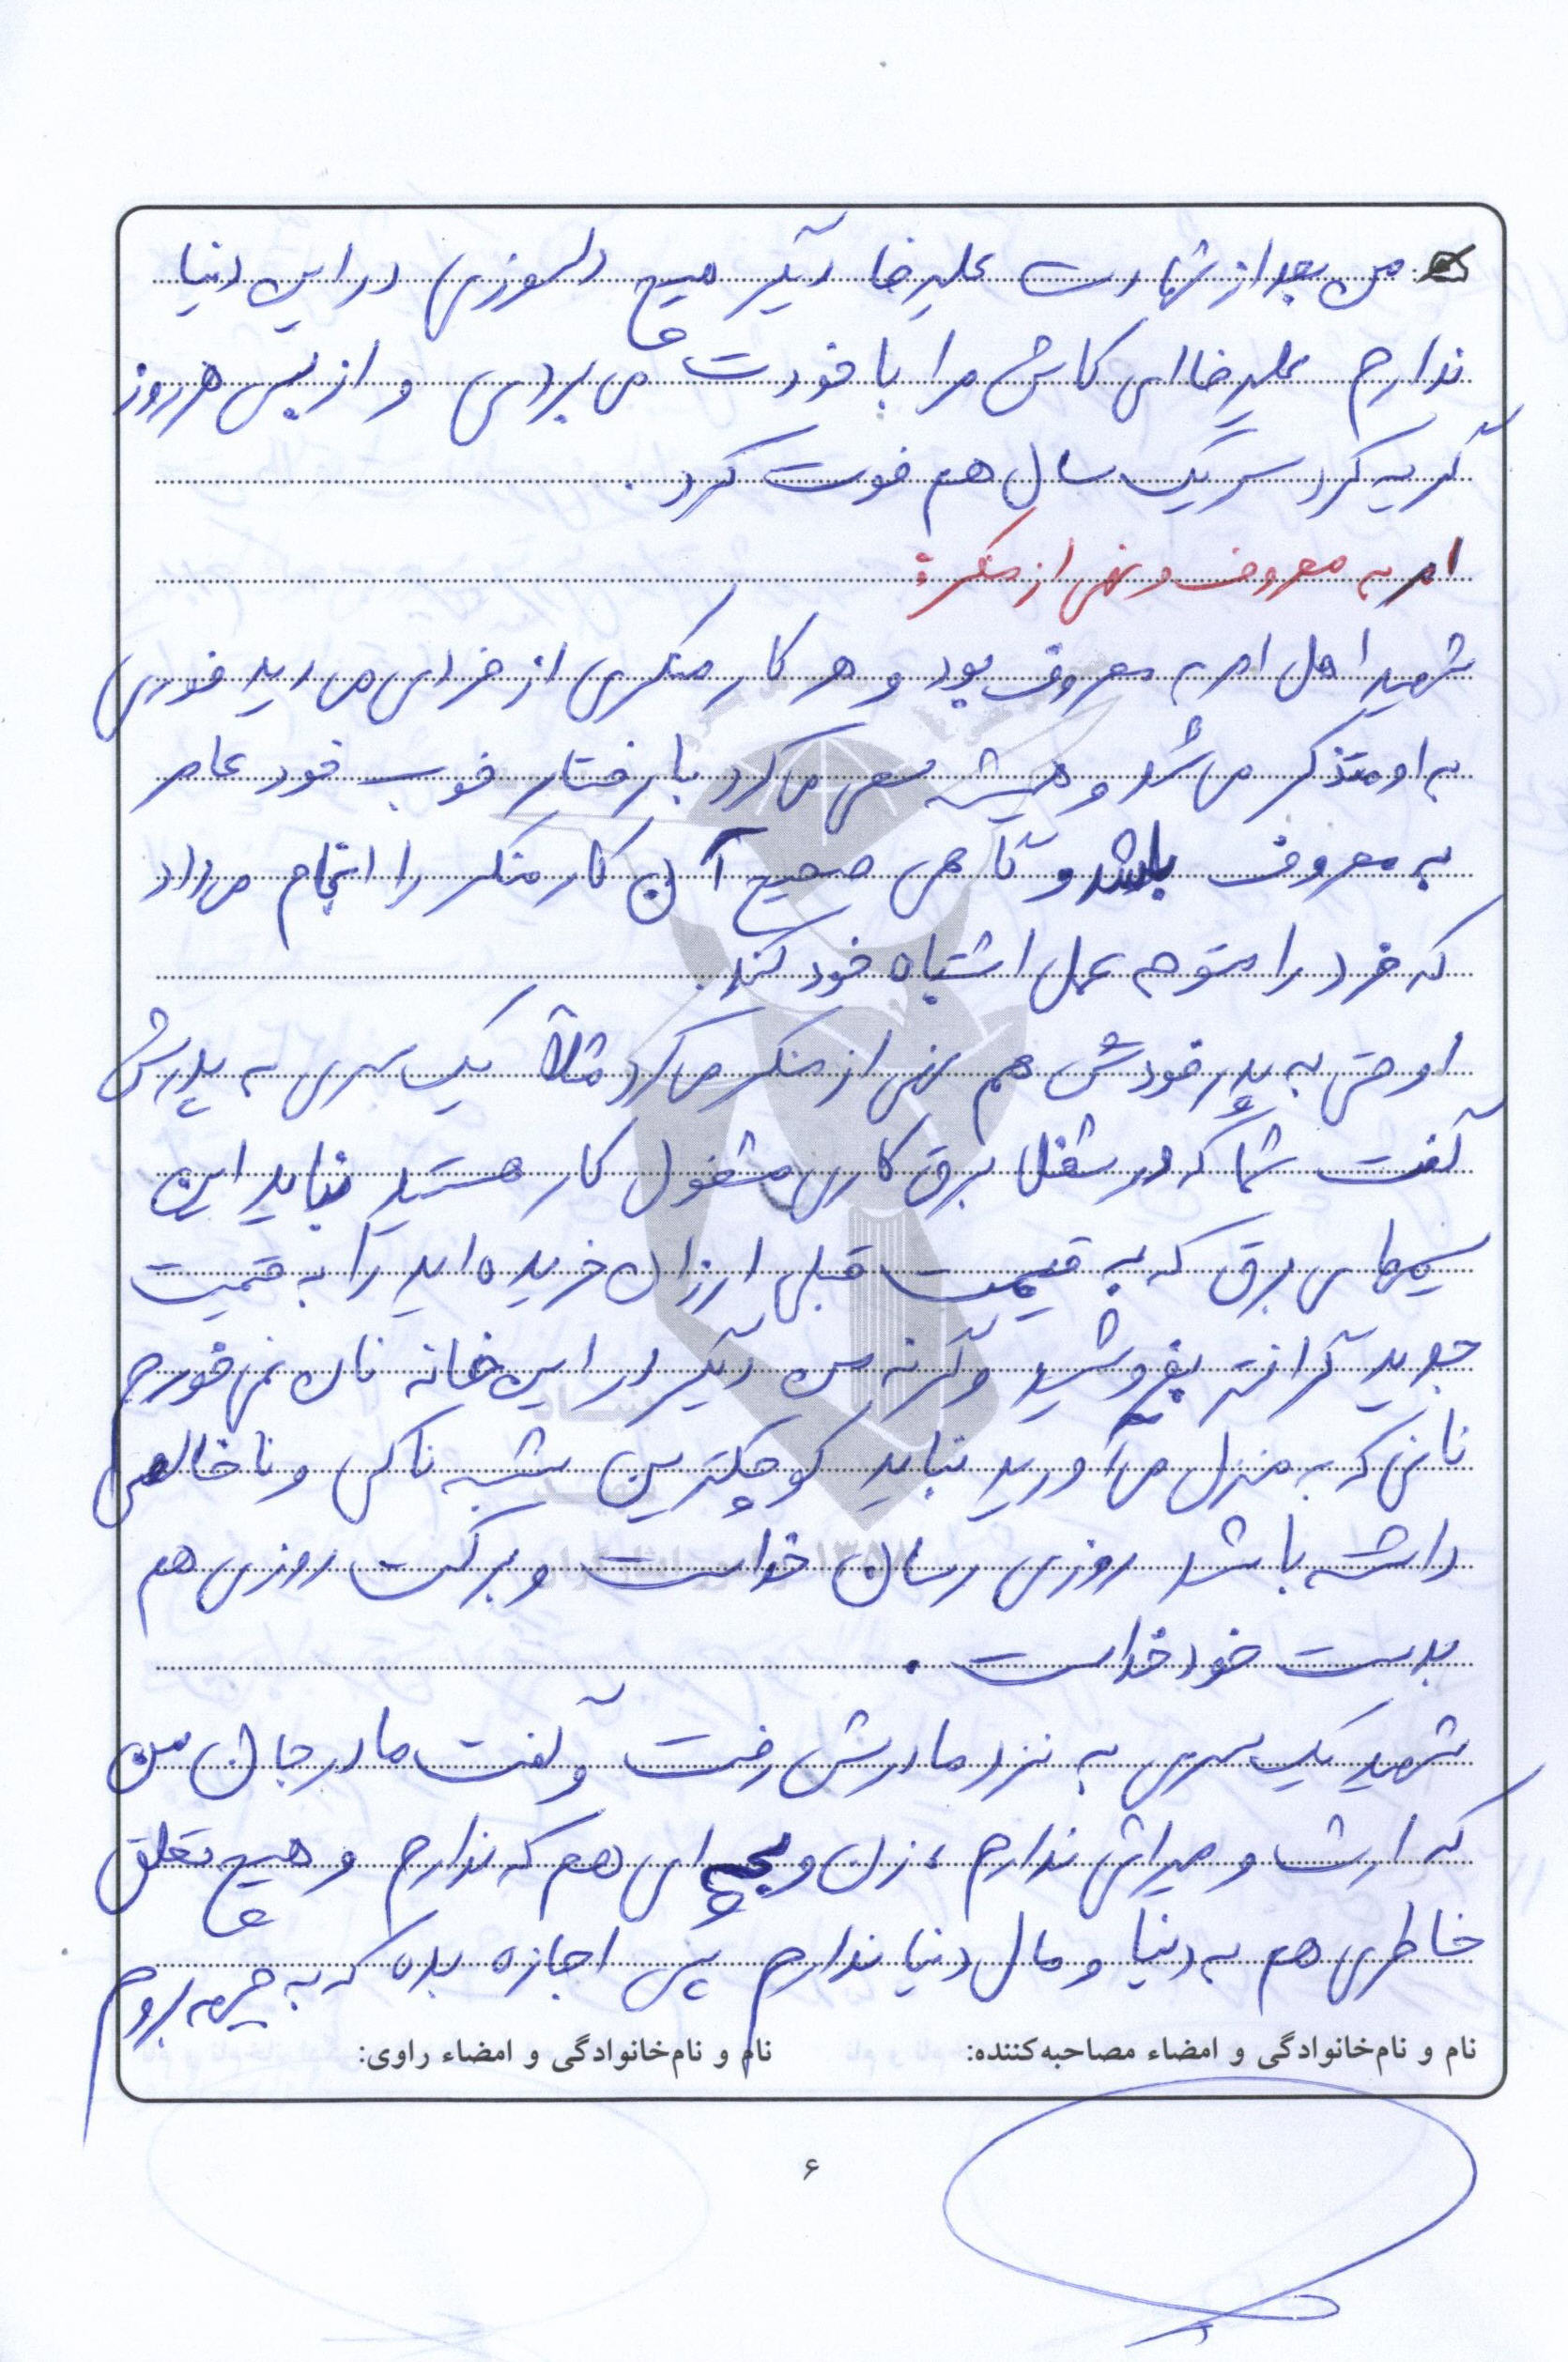 من بعد از شهادت علیرضا دیگر هیچ دلسوزی در این دنیا
ندارم علیرضا ای کاش مرا با خودت می بردی و از بس هر روز
گریه کرد سر یک سال هم فوت کرد.
امر به معروف و نهی از منکر:
شهید اهل امر به معروف بود و هر کار منکری از فردی می دید فوری
به او متذکر می شد و همیشه سعی می کرد با رفتار خوب خود عامر
به معروف باشد و گاهی صحیح آن کار منکر را انجام می داد
که فرد را متوجه عمل اشتباه خود کند.
او حتی به پدر خودش هم نهی از منکر می کرد مثلاً یک سری به پدرش
گفت شما که در شغل برق کاری مشغول کار هستید نباید این
سیمهای برق که به قیمت قبلی ارزان خریده اید را به قیمت
جدید گرانتر بفروشید وگرنه من دیگر در این خانه نان نمی خورم
نانی که به منزل می آورید نباید کوچکترین شبه ناکی و ناخالصی
داشته باشد روزی رسان خداست و برکت روزی هم
بدست خود خداست.
شهید یک سری به نزد مادرش رفت و گفت مادر جان من
که ارث و میراثی ندارم، زن و بچه ای هم که ندارم و هیچ تعلق
خاطری هم به دنیا و مال دنیا ندارم پس اجازه بده که به جبهه بروم
نام و نام‌خانوادگی و امضاء مصاحبه‌کننده: نام و نام‌خانوادگی و امضاء راوی:
۶